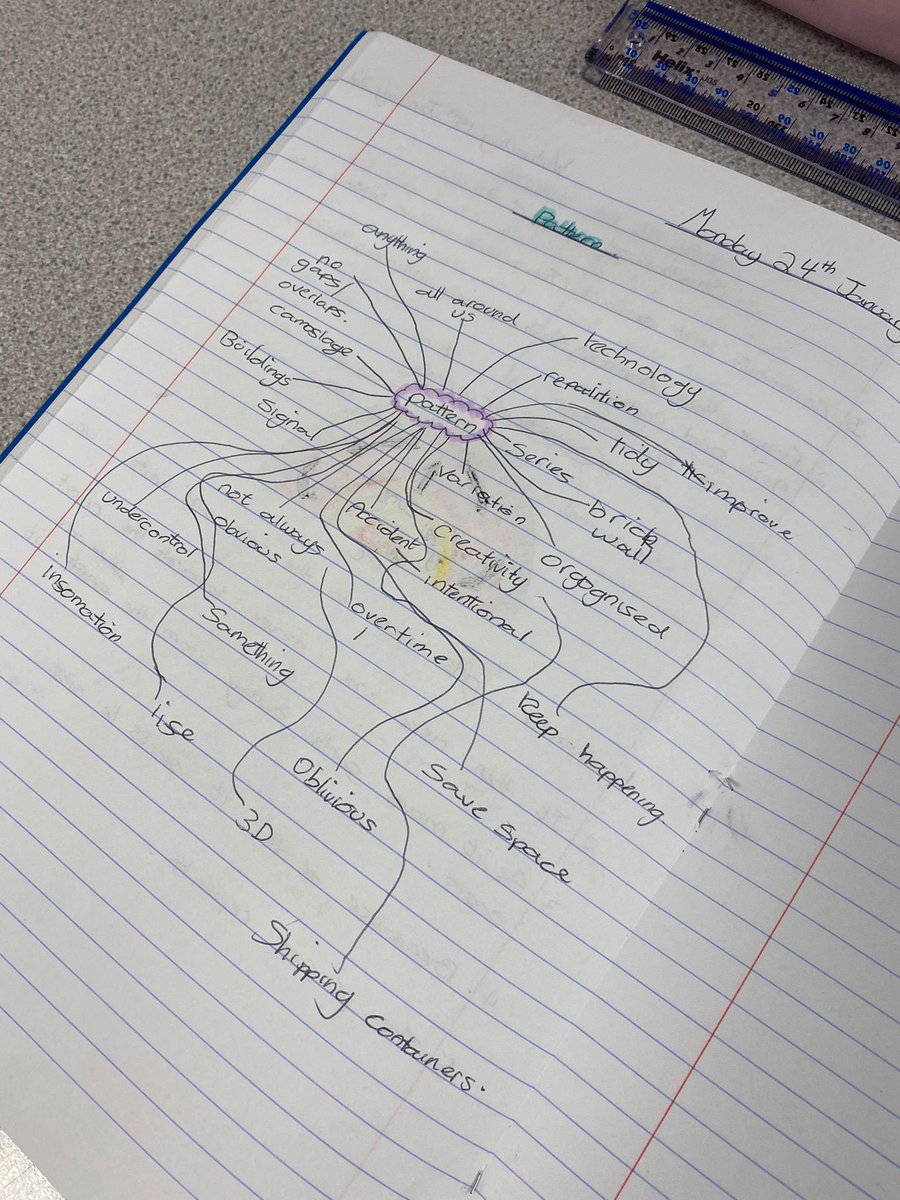 Helix
Monday 24th January
Pattern
anything
no
gaps/
overlaps.
all around
us
carroslage
technology
Buildings
repatition
pattern
Signal
Series
tidy
improve
variation
brick
wall
not always
obvious
undercontrol
Accident
Creativity
orgognised
intentional
insomation
Something
overtime
Keep happening
iise
Oblivious
Save space
3D
Shipping containers.